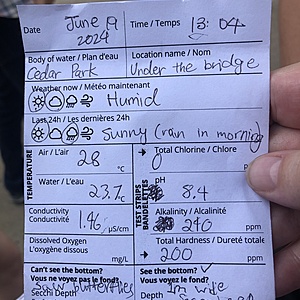 Date June 19 2024 Time / Temps 13:04
Body of water / Plan d'eau Location name / Nom
Cedar Park Under the bridge
Weather now / Météo maintenant
Humid
Last 24h / Les dernières 24h
Sunny (rain in morning)
TEMPERATURE
Air / L'air
28 °C
Water / L'eau
23.7 °C
Conductivity
Conductivité
1.46 µS/cm
Dissolved Oxygen
L'oxygène dissous
mg/L
Can't see the bottom?
Vous ne voyez pas le fond?
Saw butterflies
Secchi Depth
TEST STRIPS
BANDELETTES
Total Chlorine / Chlore
0
pH
8.4
Alkalinity / Alcalinité
240 ppm
Total Hardness / Dureté totale
200 ppm
See the bottom?
Vous voyez le fond?
1m wide
Depth